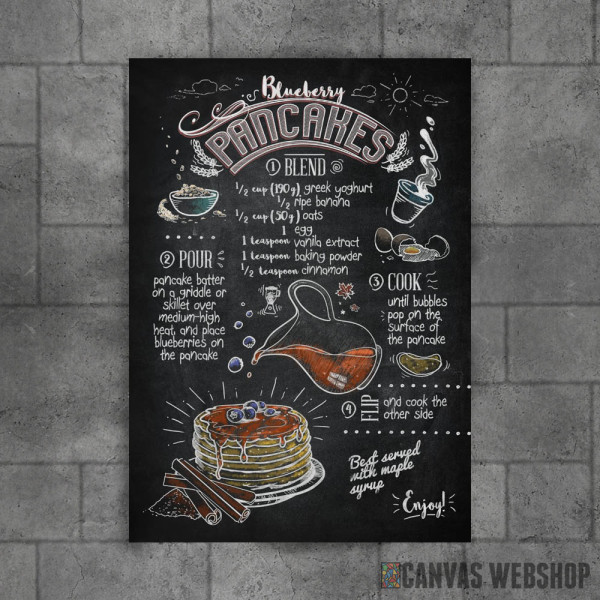 Blueberry
PANCAKES
① BLEND
1/2 cup (190g) greek yoghurt
1/2 ripe banana
1/2 cup (50g) oats
1 egg
1 teaspoon vanilla extract
1 teaspoon baking powder
1/2 teaspoon cinnamon
② POUR
pancake batter
on a griddle or
skillet over
medium-high
heat, and place
blueberries on
the pancake
③ COOK
until bubbles
pop on the
surface of
the pancake
④ FLIP
and cook the
other side
Best served
with maple
syrup
Enjoy!
CANVAS WEBSHOP